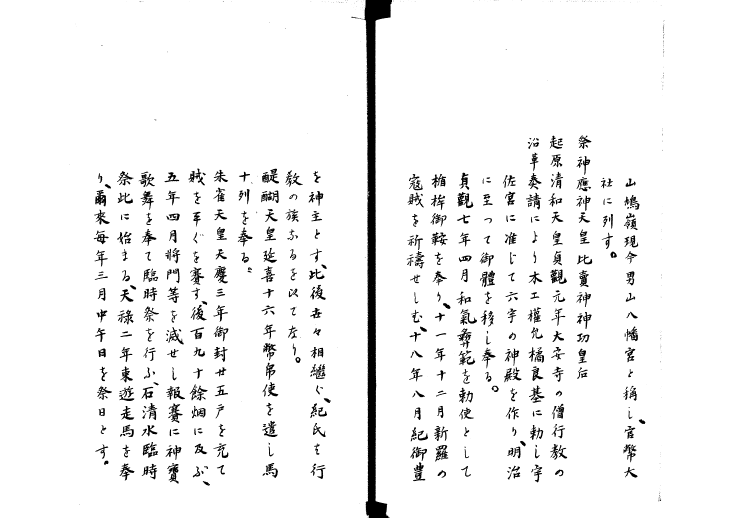 山鳩嶺現今男山八幡宮と稱し、官幣大
社に列す。
祭神應神天皇比賣神神功皇后
起原清和天皇貞觀元年大安寺の僧行教の
沿革奏請により木工權允橘良基に勅し宇
佐宮に准じて六宇の神殿を作り、明治
に至つて御體を移し奉る。
貞觀七年四月和氣彜範を勅使として
楯桙御鞍を奉り、十一年十二月新羅の
寇賊を祈禱せしむ、十八年八月紀御豊
を神主とす、此後世々相繼ぐ、紀氏も行
教の族なるを以て左り。
醍醐天皇延喜十六年幣帛使を遣し馬
十列を奉る。
朱雀天皇天慶三年御封廿五戸を充て
賊を平ぐを賽す、後百九十餘烟に及ぶ、
五年四月將門等を滅せし報賽に神寶
歌舞を奉て臨時祭を行ふ、石清水臨時
祭此に始まる、天祿二年東遊走馬を奉
り、爾來每年三月中午日を祭日とす。